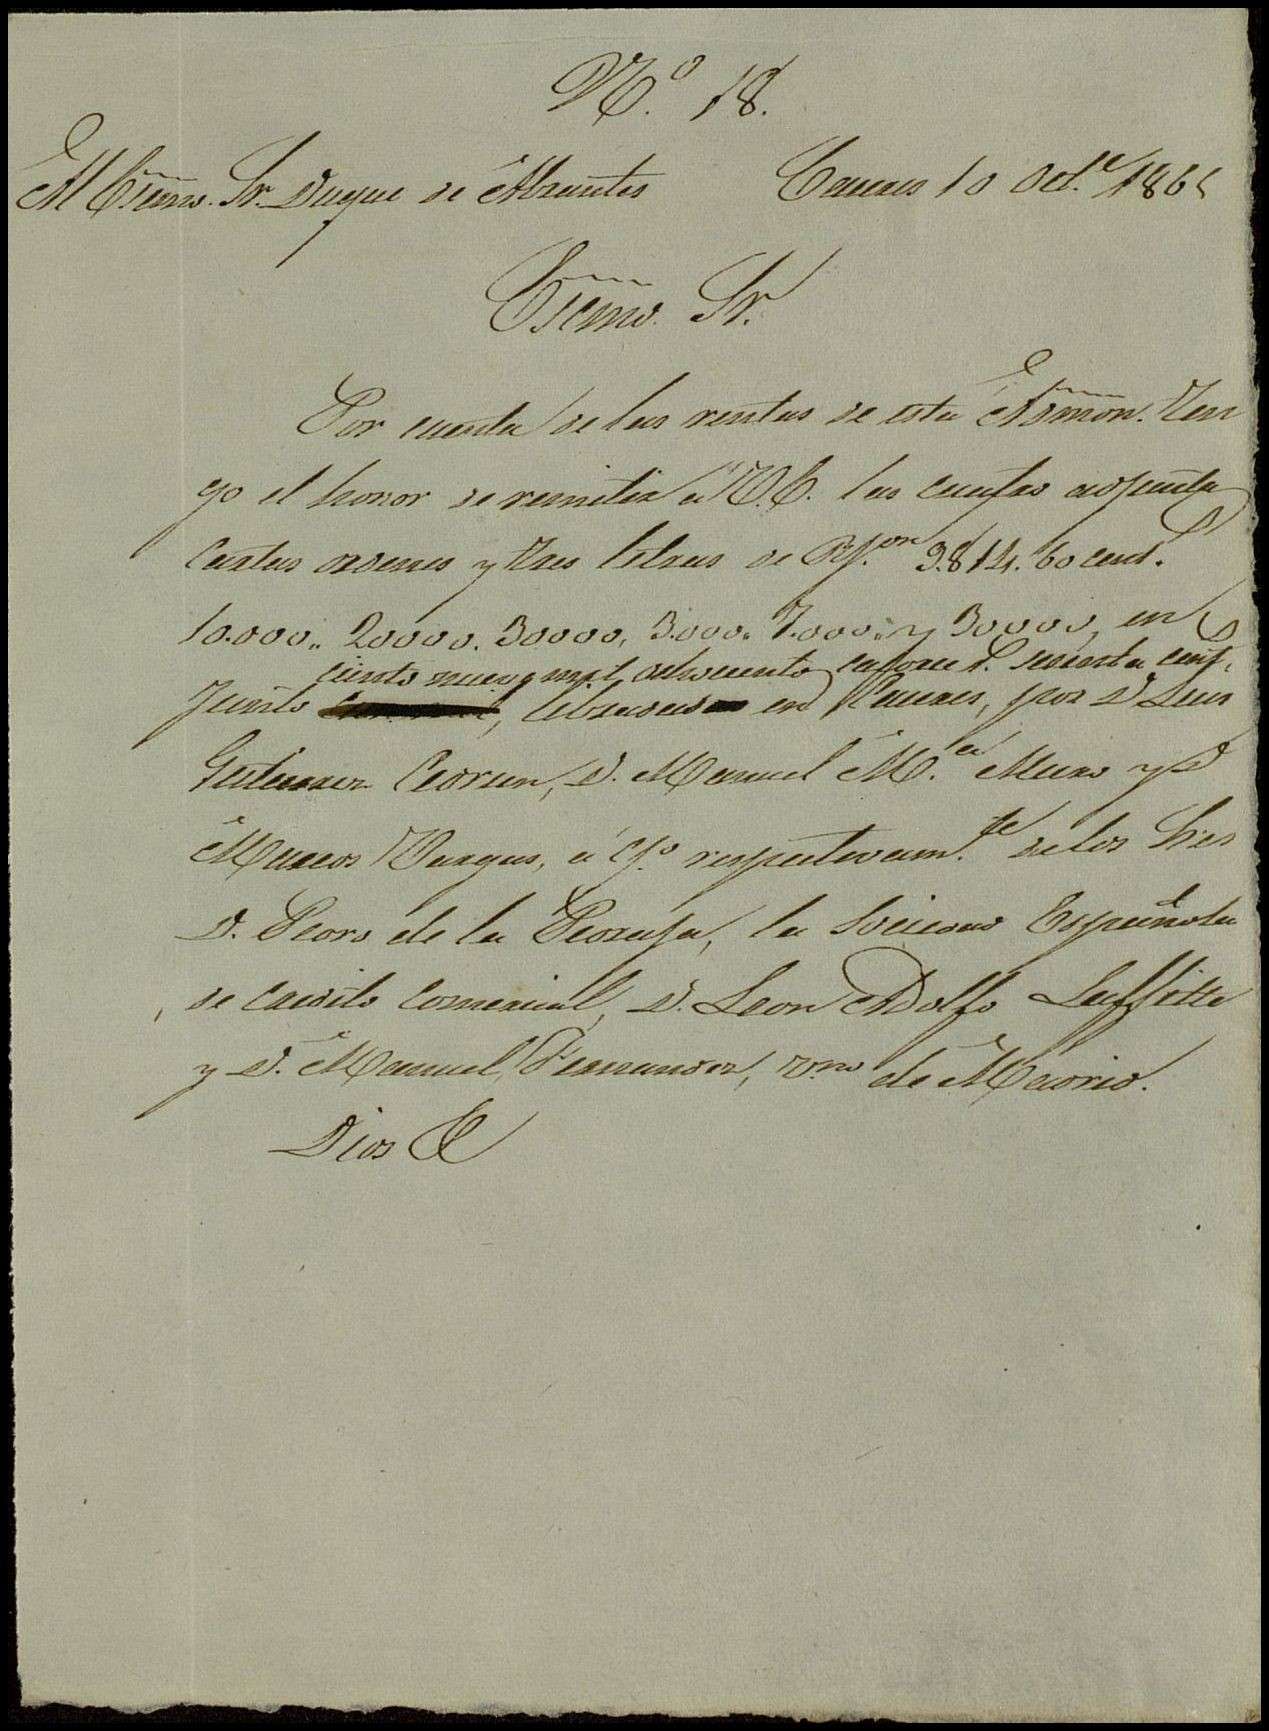 N.º 18.
Al Escmo. Sr. Duque de Abrantes Caceres 10 Oct.e 1865
Escmo. Sr.
Por cuenta de las rentas de esta Admon. ten
go el honor de remitir a V.E. las adjunta
cartas ordenes y tres letras de R.s von 9.814. 60 cent.s
10.000.. 20000. 30000, 3.000. 7.000.. y 30000, en
ciento nueve mil ochocientos catorce r.s sesenta cent.s
Junto libradas en Caceres, por D Luis
Gutierrez Cedrun, D. Manuel M.a Muro y D
Marcos Vargas, a c/o respectivam.te de los Sres
D. Pedro de la Pedraja, la Sociedad Española
de Credito Comercial, D. Leon Adolfo Laffitte
y D. Manuel Fernandez, v.no de Madrid.
Dios &